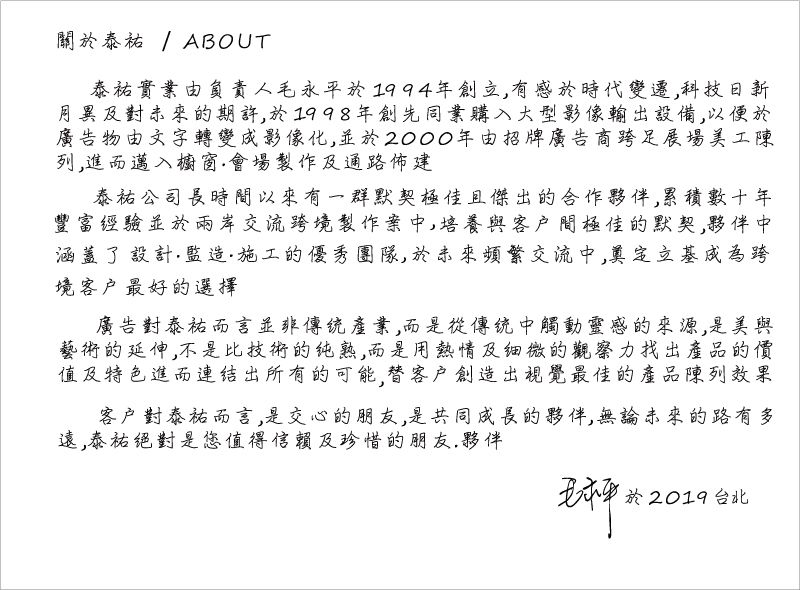 關於泰祐 / ABOUT
泰祐實業由負責人毛永平於1994年創立,有感於時代變遷,科技日新
月異及對未來的期許,於1998年創先同業購入大型影像輸出設備,以便於
廣告物由文字轉變成影像化,並於2000年由招牌廣告商跨足展場美工陳
列,進而邁入櫥窗·會場製作及通路佈建
泰祐公司長時間以來有一群默契極佳且傑出的合作夥伴,累積數十年
豐富經驗並於兩岸交流跨境製作案中,培養與客户間極佳的默契,夥伴中
涵蓋了設計·監造·施工的優秀團隊,於未來頻繁交流中,奠定立基成為跨
境客户最好的選擇
廣告對泰祐而言並非傳統產業,而是從傳統中觸動靈感的來源,是美與
藝術的延伸,不是比技術的純熟,而是用熱情及細微的觀察力找出產品的價
值及特色進而連結出所有的可能,替客户創造出視覺最佳的產品陳列效果
客户對泰祐而言,是交心的朋友,是共同成長的夥伴,無論未來的路有多
遠,泰祐絕對是您值得信賴及珍惜的朋友.夥伴
毛永平 於2019台北